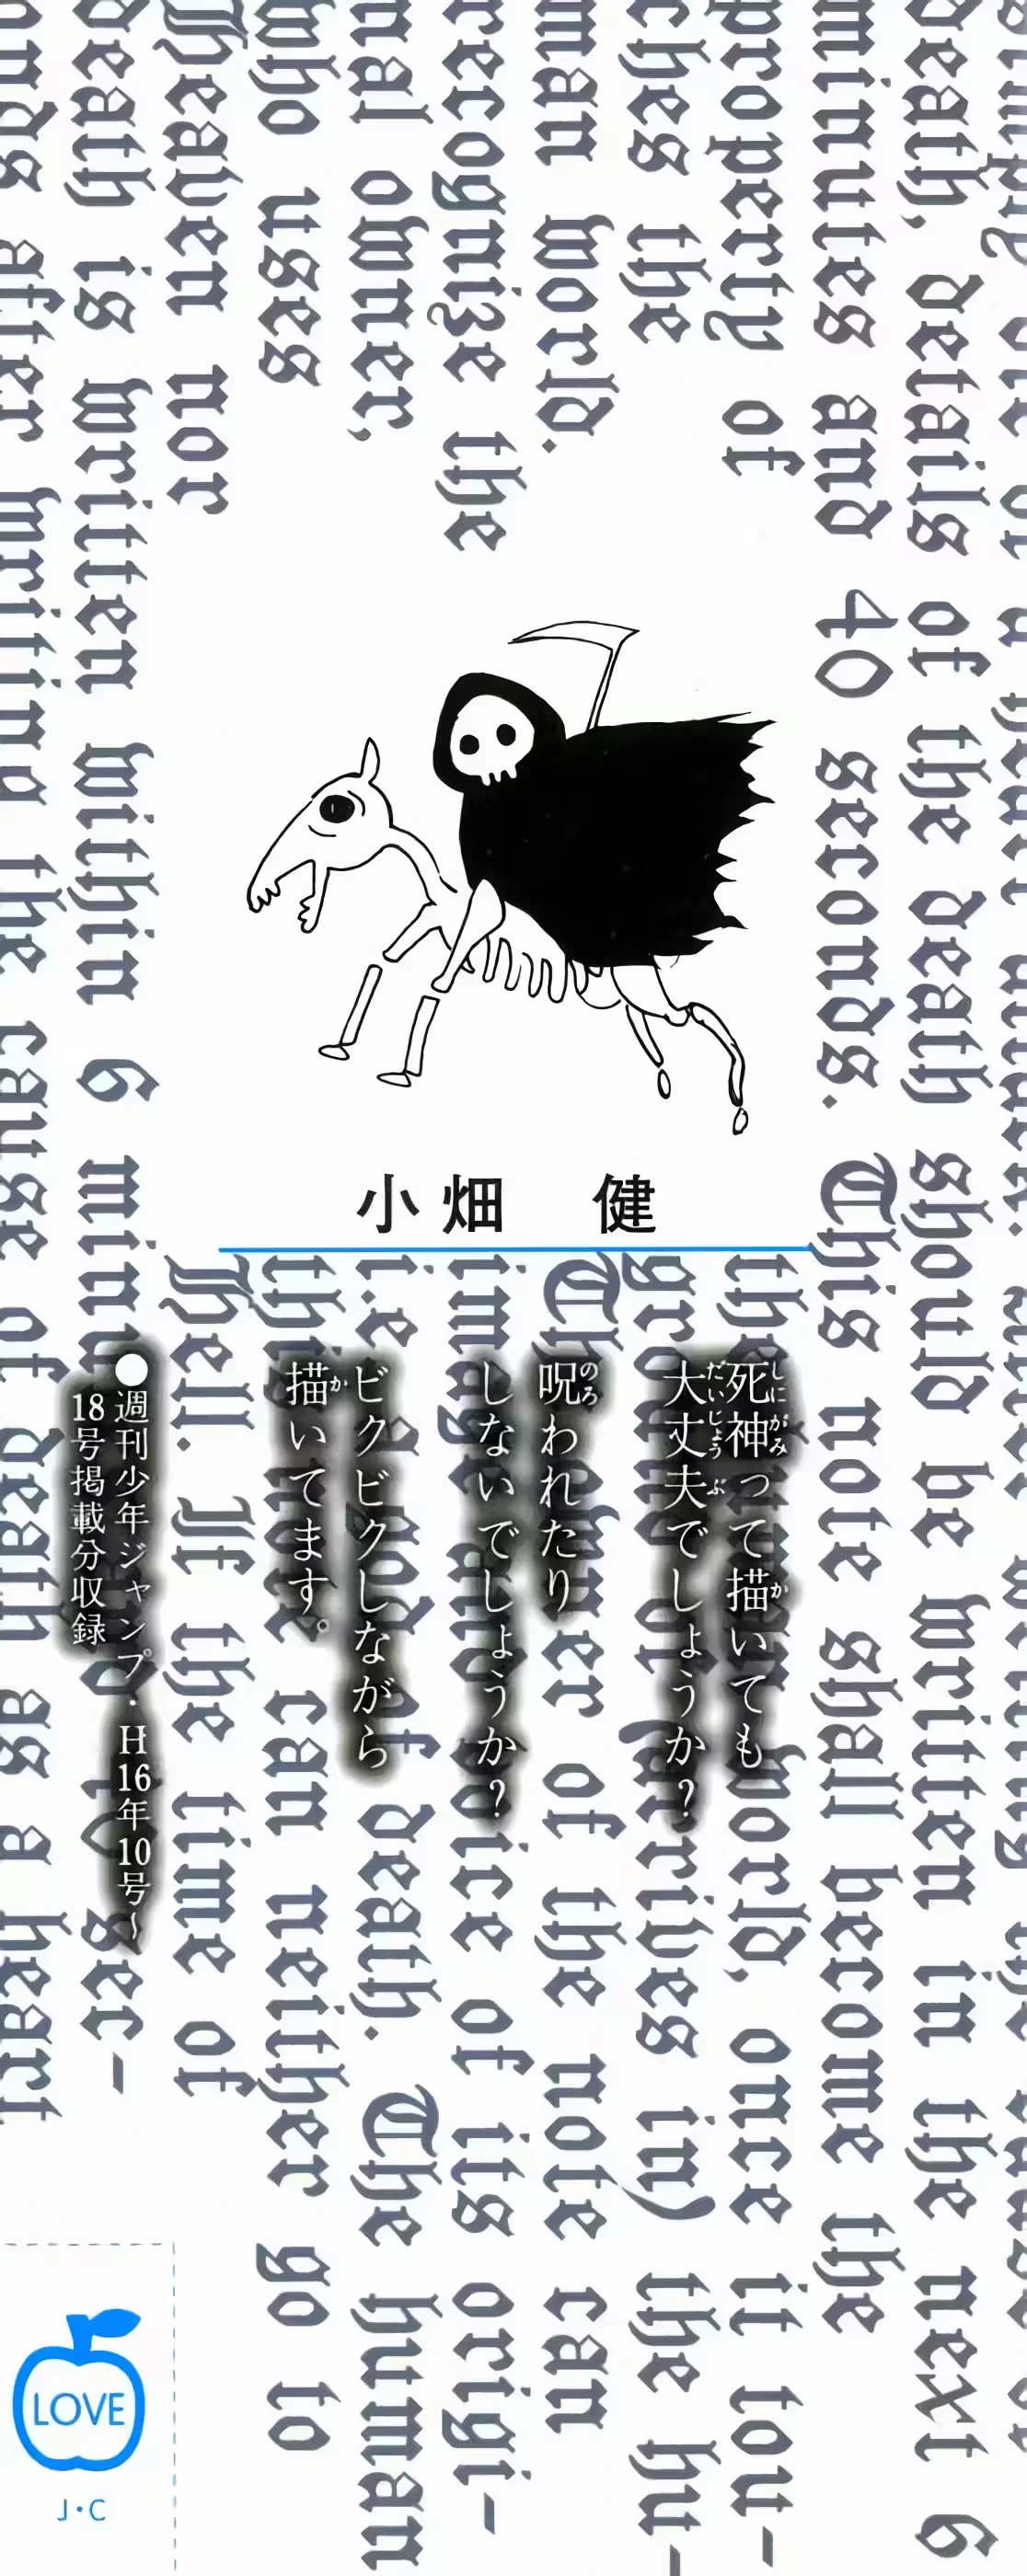 death, details of the death should be written in the next 6
minutes and 40 seconds. This note shall become the
property of the world, once it tou-
ches the (arrives in) the hu-
man world. The er of the note can
recognize the image and voice of its origi-
nal owner, i.e. a god of death. The human
who uses the can neither go to
Heaven nor Hell. If the time of
death is written within 6
after writing the cause of death as a heart
小畑 健
死神って描いても
大丈夫でしょうか？
呪われたり
しないでしょうか？
ビクビクしながら
描いてます。
●週刊少年ジャンプ・H16年10号～
18号掲載分収録
LOVE
J・C